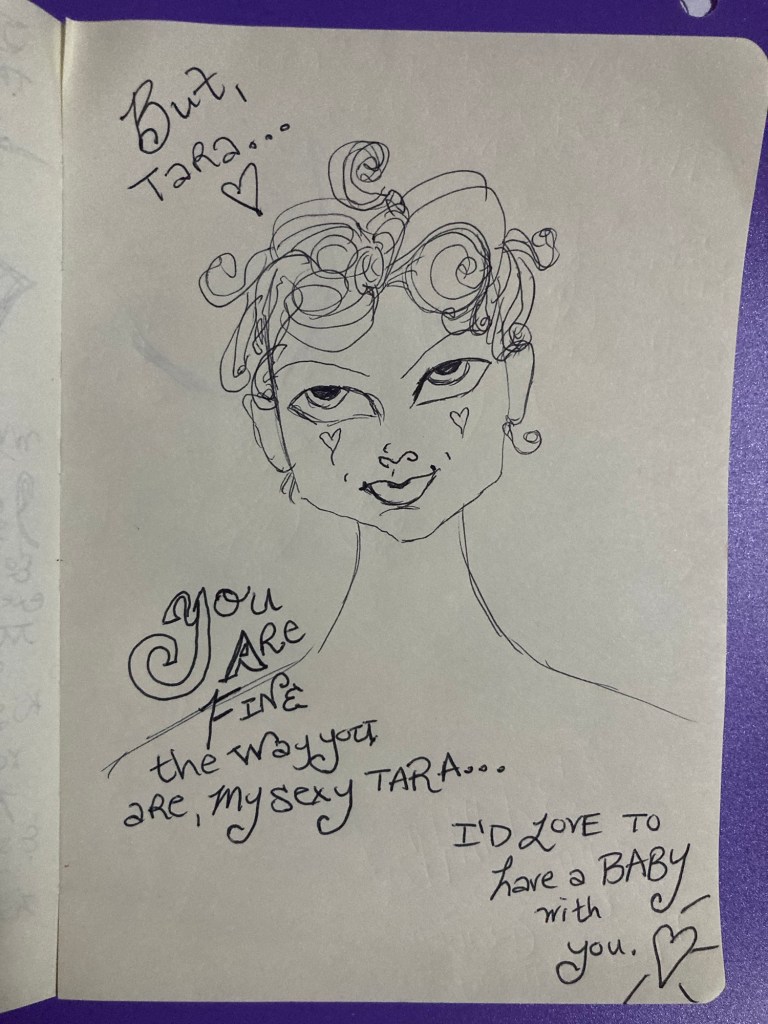 But,
TARA...
You
ARE
FINE
the way you
are, my sexy TARA...
I'D LOVE TO
have a BABY
with
you.